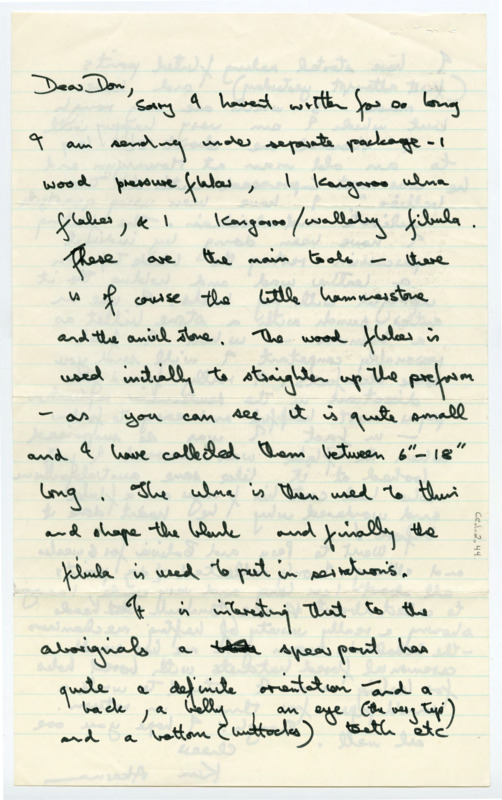 Dear Don,
Sorry I havent written for so long
I am sending under separate package - 1
wood pressure flaker 1 Kangaroo ulna
flaker, & 1 Kangaroo/wallaby fibula.
These are the main tools - there
is of course the little hammerstone
and the anvil stone. The wood flaker is
used initially to straighten up the preform
- as you can see it is quite small
and I have collected them between 6"-18"
long. The ulna is then used to thin
and shape the blank and finally the
fibula is used to put in serrations.
It is interesting that to the
aboriginals a spear point has
quite a definite orientation - and a
back, a belly, an eye (the very tip)
and a bottom (buttocks) teeth etc